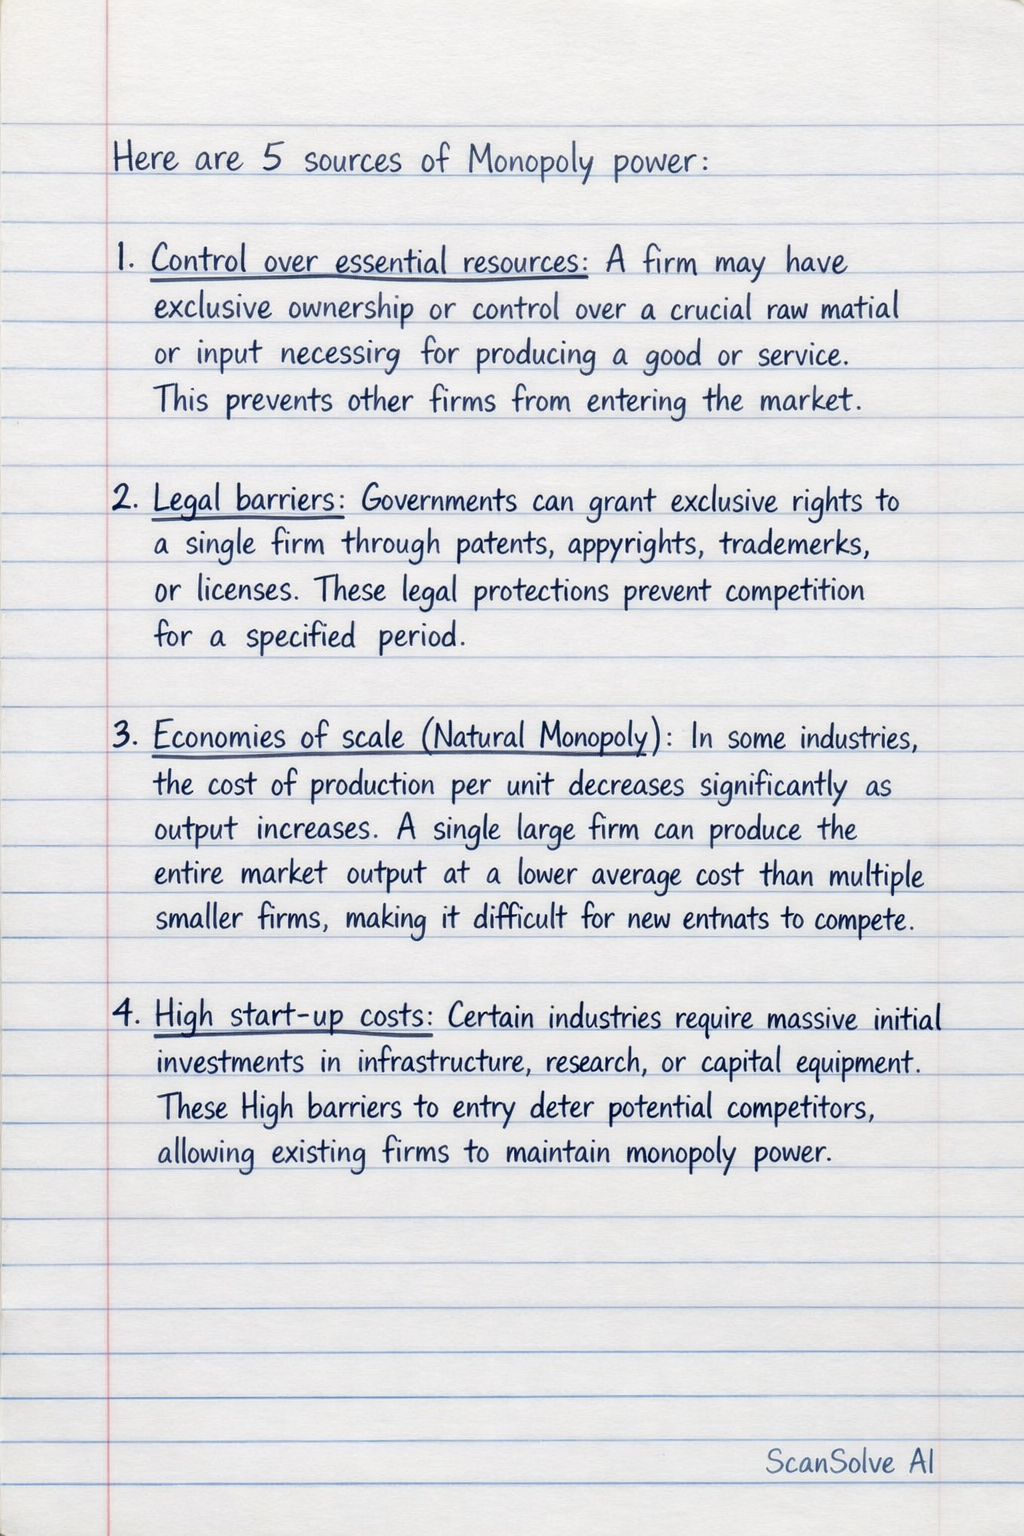 Here are 5 sources of Monopoly power:
1. Control over essential resources: A firm may have
exclusive ownership or control over a crucial raw matial
or input necessirg for producing a good or service.
This prevents other firms from entering the market.
2. Legal barriers: Governments can grant exclusive rights to
a single firm through patents, appyrights, trademerks,
or licenses. These legal protections prevent competition
for a specified period.
3. Economies of scale (Natural Monopoly): In some industries,
the cost of production per unit decreases significantly as
output increases. A single large firm can produce the
entire market output at a lower average cost than multiple
smaller firms, making it difficult for new entnats to compete.
4. High start-up costs: Certain industries require massive initial
investments in infrastructure, research, or capital equipment.
These High barriers to entry deter potential competitors,
allowing existing firms to maintain monopoly power.
ScanSolve AI